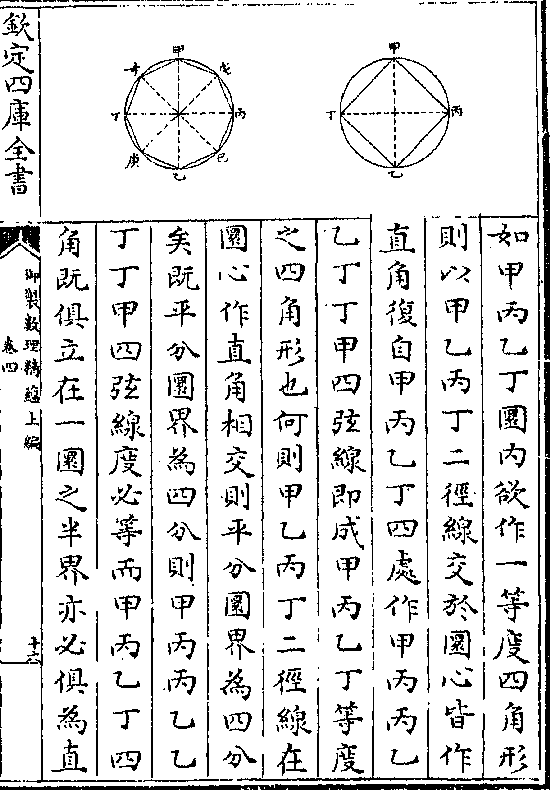 甲
丙
丁
乙
甲
戊
丙
己
乙
庚
丁
辛
如甲丙乙丁圜内欲作一等度四角形
則以甲乙丙丁二徑線交於圜心皆作
直角復自甲丙乙丁四處作甲丙丙乙
乙丁丁甲四弦線即成甲丙乙丁等度
之四角形也何則甲乙丙丁二徑線在
圜心作直角相交則平分圜界為四分
矣既平分圜界為四分則甲丙丙乙乙
丁丁甲四弦線度必等而甲丙乙丁四
角既俱立在一圜之半界亦必俱為直
欽定四庫全書
御製數理精蘊上編
卷四